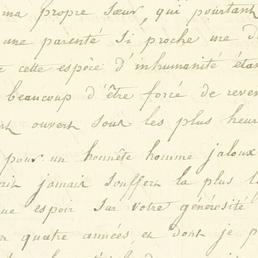 ma propre sœur, qui pourtant
une parenté si proche me d
cette espèce d'inhumanité étan
beaucoup d'être forcé de reven
ouvert sont les plus heur
pour un honnête homme jaloux
jamais souffert la plus l
espoir sur votre générosité
quatre années, et dont je p